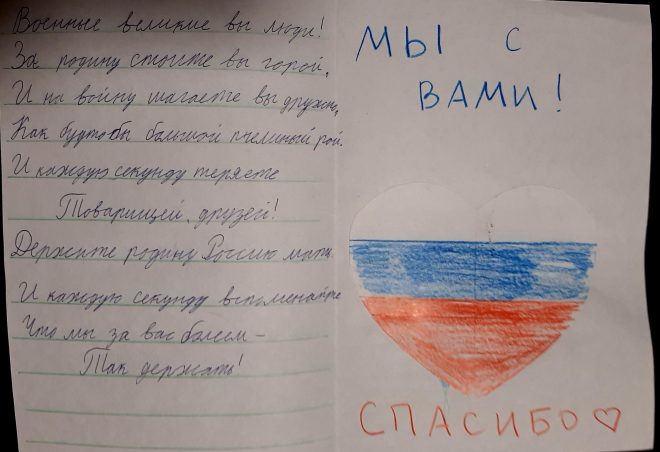 Военные великие вы люди!
За родину стоите вы горой,
И на войну шагаете вы дружно,
Как будтобы большой пчелиный рой.
И каждую секунду теряете
Товарищей, друзей!
Держите родину Россию
И каждую секунду вспоменайте
Что мы за вас болеем –
Так держать!
МЫ С
ВАМИ!
СПАСИБО♡